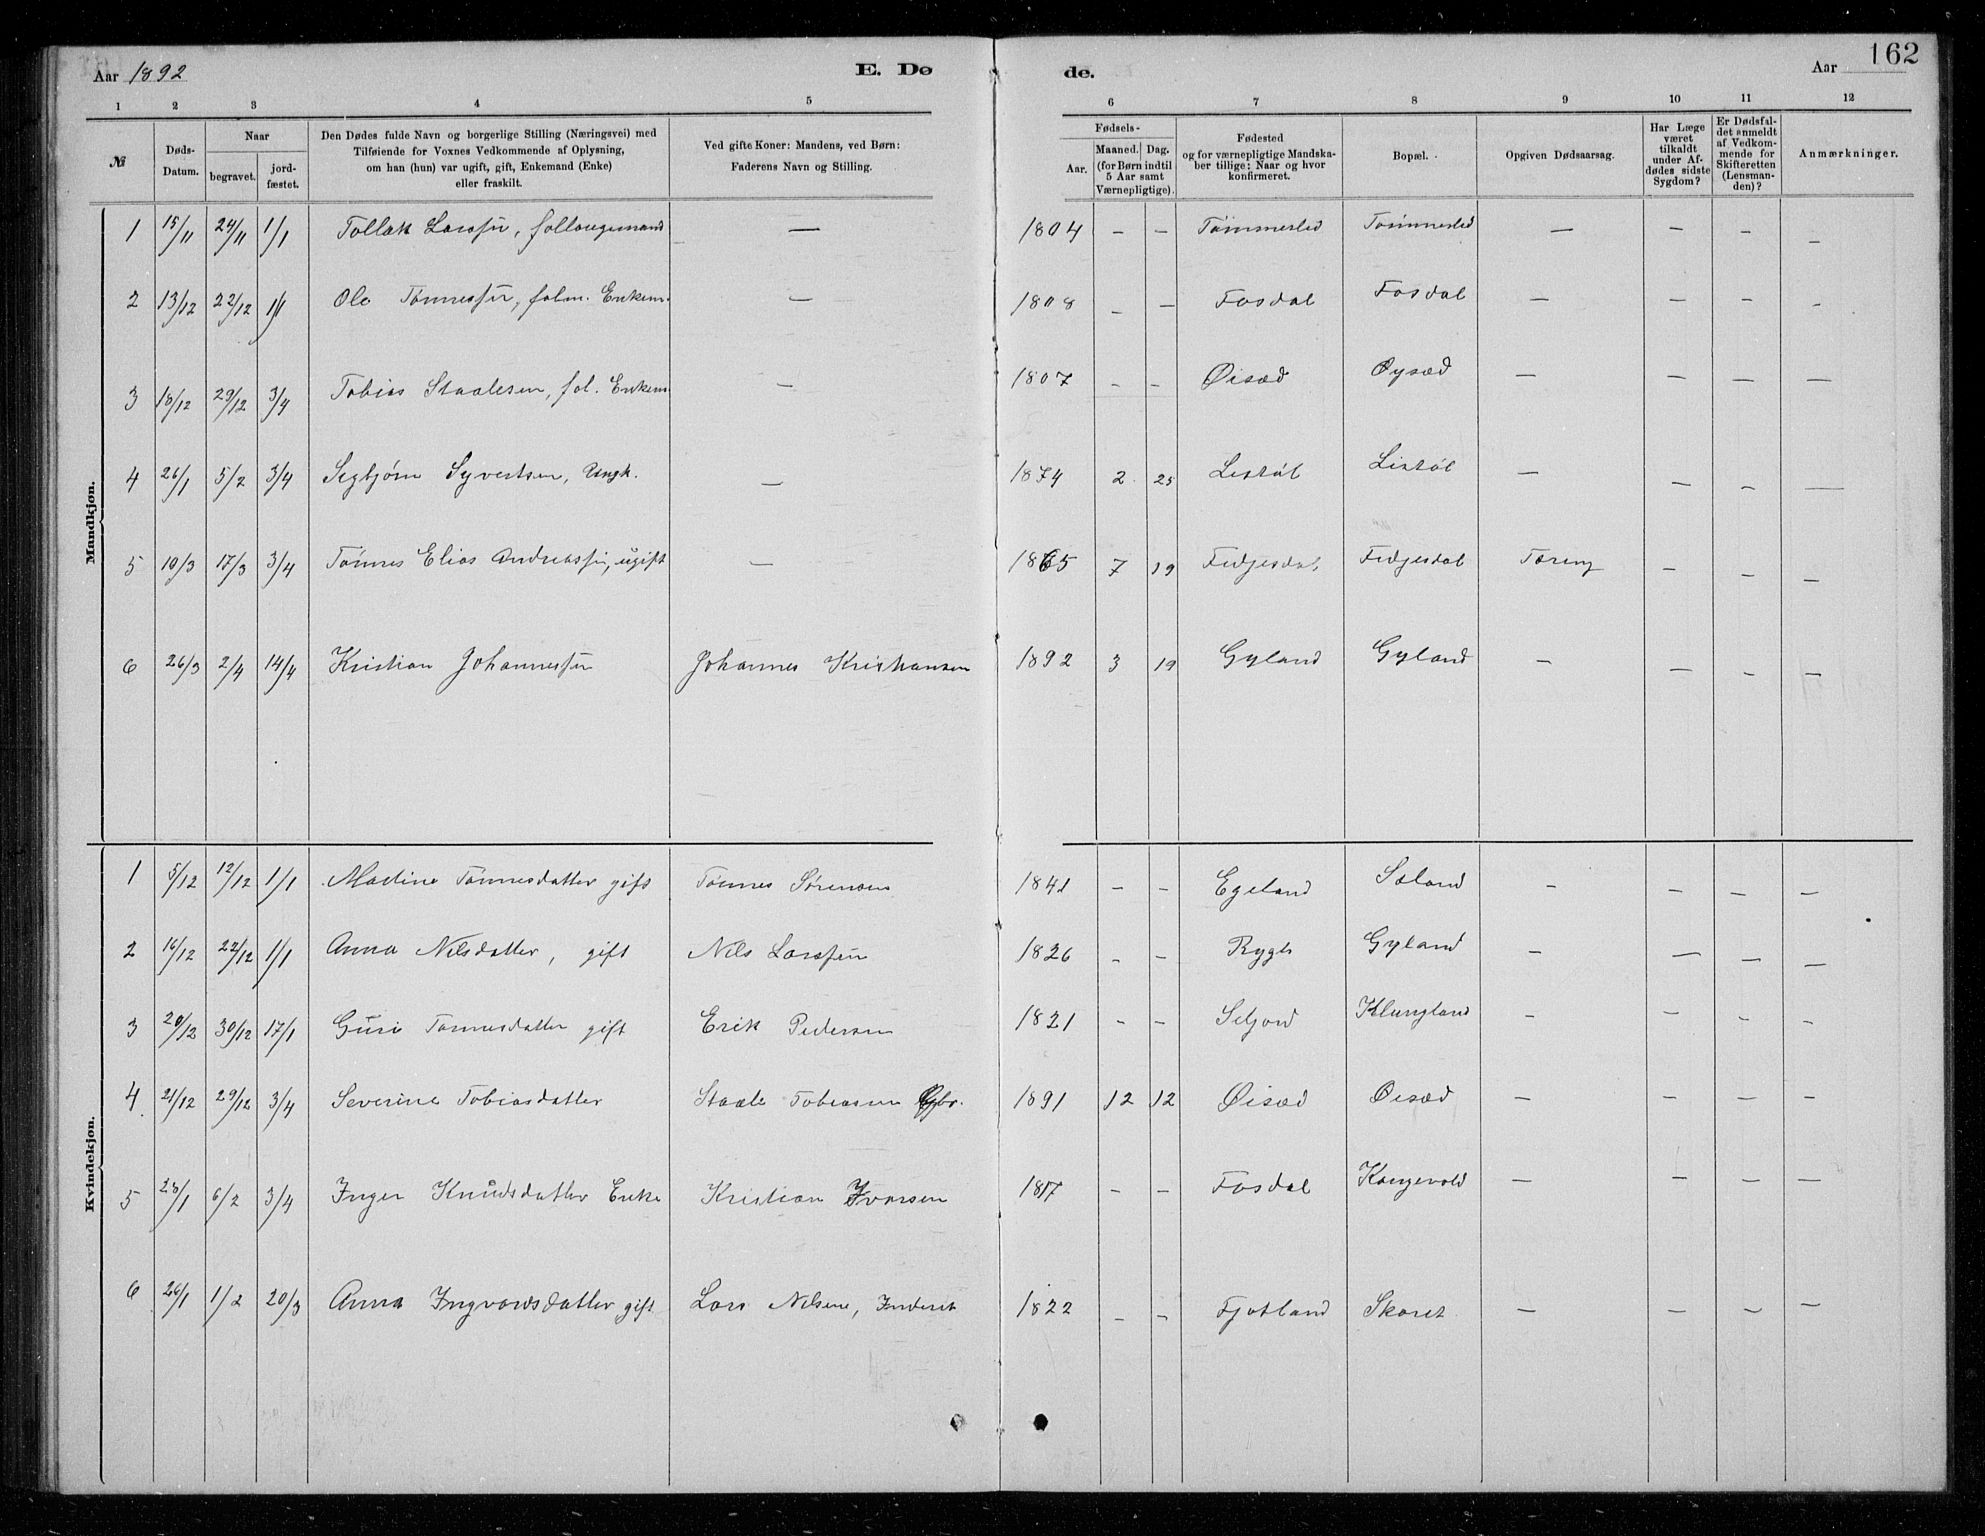 Aar 1892 E. Dø de. Aar 162
1 2 3 4 5 6 7 8 9 10 11 12
№ Døds-Datum. Naar begravet. jord-fæstet. Den Dødes fulde Navn og borgerlige Stilling (Næringsvei) med Tilføiende for Voxnes Vedkommende af Oplysning, om han (hun) var ugift, gift, Enkemand (Enke) eller fraskilt. Ved gifte Koner: Mandens, ved Børn: Faderens Navn og Stilling. Fødsels- Aar. Maaned. Dag. (for Børn indtil 5 Aar samt Værnepligtige). Fødested og for værnepligtige Mandskaber tillige: Naar og hvor konfirmeret. Bopæl. Opgiven Dødsaarsag. Har Læge været tilkaldt under Afdødes sidste Sygdom? Er Dødsfaldet anmeldt af Vedkommende for Skifteretten (Lensmanden)? Anmærkninger.
Mandkjøn.
1 15/11 24/11 1/1 Tollak Larssen, follaugsmand — 1804 — — Tömmerlid Tømmerlid — — — —
2 13/12 22/12 1/1 Ole Tønnessen, folm. Enkem. — 1808 — — Fosdal Fosdal — — — -
3 18/12 29/12 3/4 Tobias Staalesen, fol. Enkem — 1807 — — Øisæd Øysæd — — — —
4 26/1 5/2 3/4 Segbjørn Syvertsen, Ungk. — 1874 2 25 Listøl Listøl — — — —
5 10/3 17/3 3/4 Tønnes Elias Andreassen, ugift — 1865 7 19 Fidjesdal Fidjesdal Tæring — — —
6 26/3 2/4 14/4 Kristian Johannessen Johannes Kristiansen 1892 3 19 Gyland Gyland — — — —
Kvindekjøn.
1 5/12 12/12 1/1 Martine Tønnesdatter gift Tønnes Sørensen 1841 — — Egeland Sæland — — — —
2 16/12 22/12 1/1 Anna Nilsdatter, gift Nils Larssen 1826 — — Bygls Gyland — — — —
3 20/12 30/12 17/1 Guri Tønnesdatter gift Erik Pedersen 1821 — — Seljord Klungland — — — —
4 21/12 29/12 3/4 Severine Tobiasdatter Staale Tobiassen Gbr. 1891 12 12 Øisæd Øisæd — — — —
5 28/1 6/2 3/4 Inger Knudsdatter Enke Kristian Ivarsen 1817 — — Fosdal Kongevold — — — —
6 26/1 1/2 20/3 Anna Ingvardsdatter gift Lars Nilsen, Inderst 1822 — — Fjotland Skoret — — — —